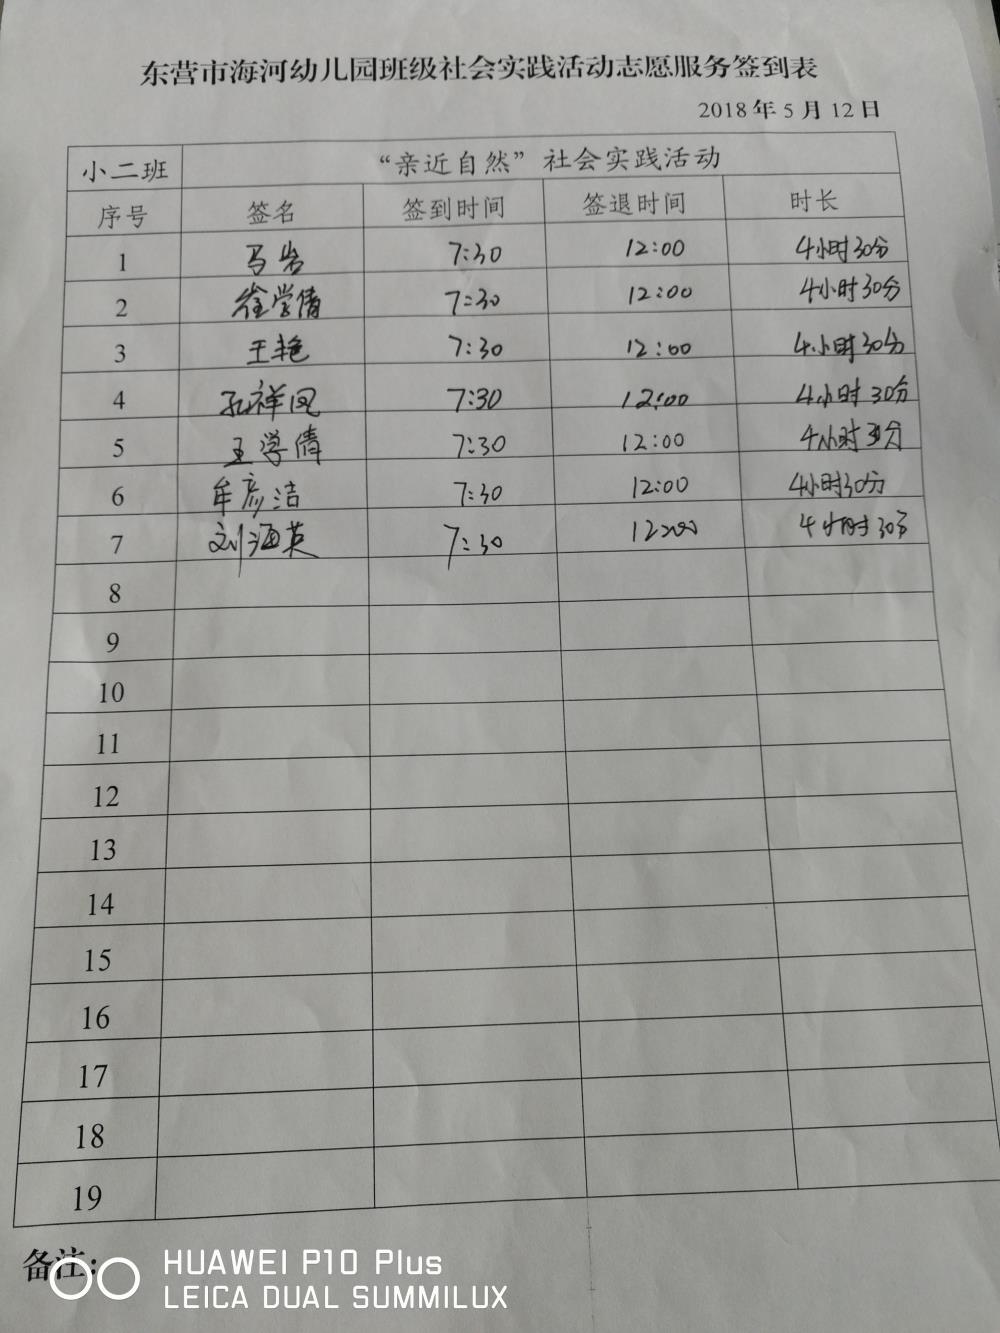 东营市海河幼儿园班级社会实践活动志愿服务签到表
2018年5月12日
小二班 “亲近自然”社会实践活动
序号 签名 签到时间 签退时间 时长
1 马岩 7:30 12:00 4小时30分
2 崔学倩 7:30 12:00 4小时30分
3 王艳 7:30 12:00 4小时30分
4 孔祥凤 7:30 12:00 4小时30分
5 王学倩 7:30 12:00 4小时30分
6 牟彦洁 7:30 12:00 4小时30分
7 刘海英 7:30 12:00 4小时30分
8
9
10
11
12
13
14
15
16
17
18
19
备注:
HUAWEI P10 Plus
LEICA DUAL SUMMILUX